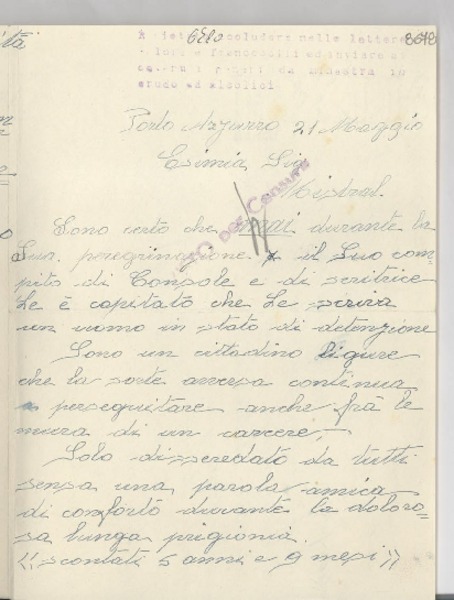 6210
8048
nelle lettere
crudo ed alcolici
Porto Azzurro 21 Maggio
Esimia Sig.
Mistral.
Sono certo che mai durante la
Sua peregrinazione il Suo com-
pito di Console e di scritrice
Le è capitato che Le scriva
un uomo in stato di detenzione
Sono un cittadino ligure
che la sorte avversa continua
a perseguitare anche frà le
mura di un carcere,
Solo diseredato da tutti
sensa una parola amica
di conforto durante la doloro-
sa lunga prigionia.
<< scontati 5 anni e 9 mesi >>